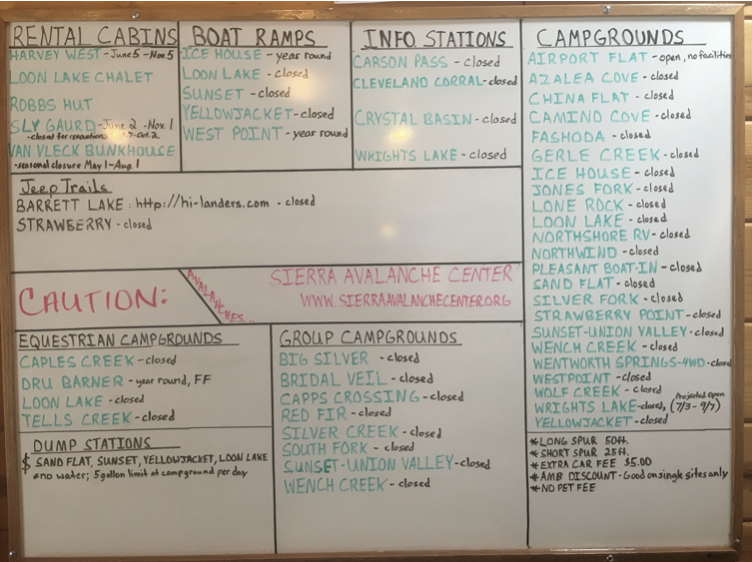 RENTAL CABINS
HARVEY WEST - June 5 - Nov. 5
LOON LAKE CHALET
ROBBS HUT
SLY GAURD - June 2 - Nov. 1
- closed for renovations
VAN VLECK BUNKHOUSE
- seasonal closure May 1 - Aug. 1
BOAT RAMPS
ICE HOUSE - year round
LOON LAKE - closed
SUNSET - closed
YELLOWJACKET - closed
WEST POINT - year round
INFO STATIONS
CARSON PASS - closed
CLEVELAND CORRAL - closed
CRYSTAL BASIN - closed
WRIGHTS LAKE - closed
Jeep Trails
BARRETT LAKE : http://hi-landers.com - closed
STRAWBERRY - closed
CAUTION:
AVALANCHES...
SIERRA AVALANCHE CENTER
WWW.SIERRAAVALANCHECENTER.ORG
EQUESTRIAN CAMPGROUNDS
CAPLES CREEK - closed
DRU BARNER - year round, FF
LOON LAKE - closed
TELLS CREEK - closed
DUMP STATIONS
$ SAND FLAT, SUNSET, YELLOWJACKET, LOON LAKE
*no water; 5 gallon limit at campground per day
GROUP CAMPGROUNDS
BIG SILVER - closed
BRIDAL VEIL - closed
CAPPS CROSSING - closed
RED FIR - closed
SILVER CREEK - closed
SOUTH FORK - closed
SUNSET-UNION VALLEY - closed
WENCH CREEK - closed
CAMPGROUNDS
AIRPORT FLAT - open, no facilities
AZALEA COVE - closed
CHINA FLAT - closed
CAMINO COVE - closed
FASHODA - closed
GERLE CREEK - closed
ICE HOUSE - closed
JONES FORK - closed
LONE ROCK - closed
LOON LAKE - closed
NORTHSHORE RV - closed
NORTHWIND - closed
PLEASANT BOAT-IN - closed
SAND FLAT - closed
SILVER FORK - closed
STRAWBERRY POINT - closed
SUNSET-UNION VALLEY - closed
WENCH CREEK - closed
WENTWORTH SPRINGS-4WD - closed
WESTPOINT - closed
WOLF CREEK - closed
WRIGHTS LAKE - closed, Projected Open (7/3 - 9/7)
YELLOWJACKET - closed
*LONG SPUR 50ft.
*SHORT SPUR 25ft.
*EXTRA CAR FEE $5.00
*AMB DISCOUNT - Good on single sites only
*NO PET FEE